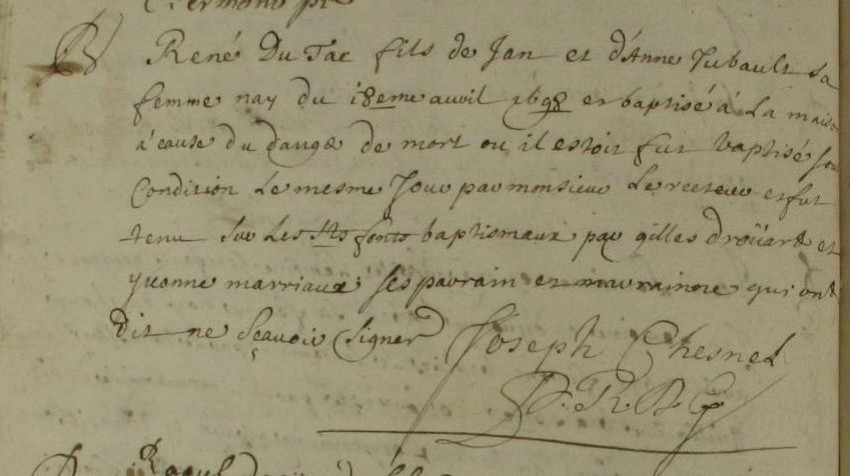 B René Du Tac fils de Jan et d'Anne Jubault sa
femme nay du 18eme avril 1698 et baptisé à la maison
à cause du danger de mort ou il estoit fut baptisé sou
Condition le mesme Jour par monsieur Le recteur et fut
tenu sur les sts fonts baptismaux par gilles droüard et
yvonne marriaux ses parrain et marrainne qui ont
dit ne sçavoir signer Joseph Chesnel